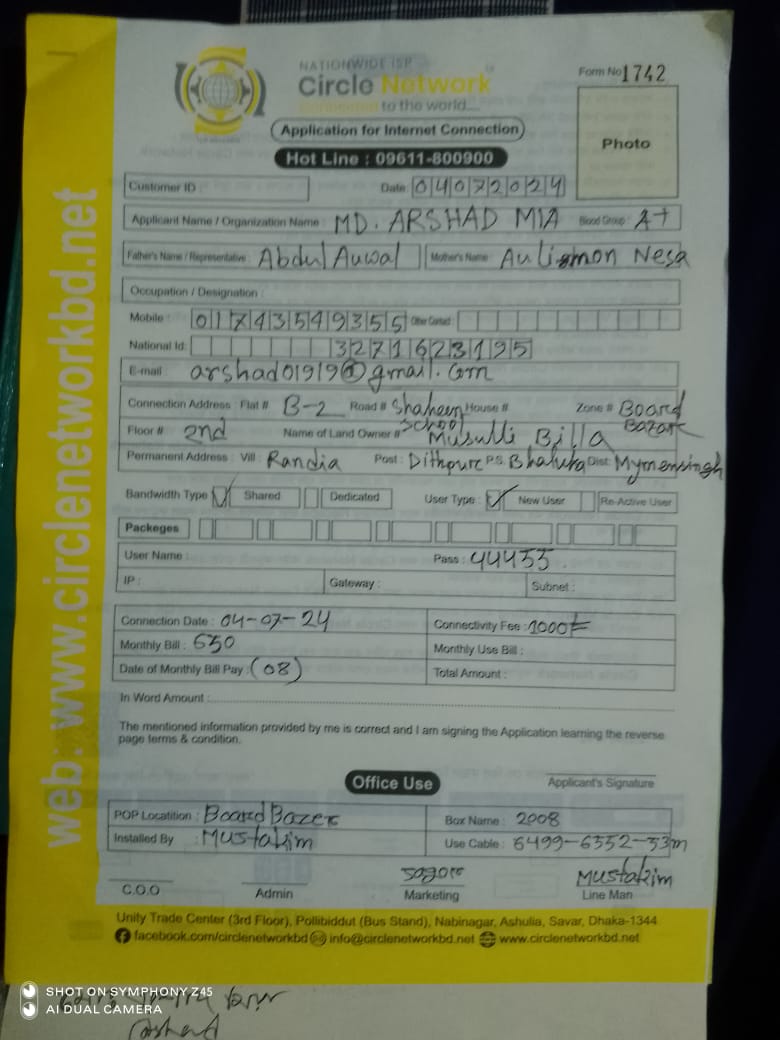 NATIONWIDE ISP
Circle Network
Connected to the world...
Form No 1742
Application for Internet Connection
Photo
Hot Line : 09611-800900
Customer ID
Date: 04072024
Applicant Name / Organization Name : MD. ARSHAD MIA Blood Group : A+
Father's Name / Representative : Abdul Auwal Mother's Name : Nesa
Occupation / Designation :
Mobile : 01743549355 Other Contact :
National Id: 3271623195
E-mail : arshad01919@gmail.com
Connection Address : Flat # B-2 Road # Shaheen School House # Zone # Board Bazar
Floor # 2nd Name of Land Owner # Musulli Billa
Permanent Address : Vill : Randia Post : Dithpure P.S: Bhaluka Dist: Mymensingh
Bandwidth Type ✓ Shared Dedicated User Type : ✓ New User Re-Active User
Packeges
User Name : Pass : 44455
IP : Gateway : Subnet :
Connection Date : 04-07-24 Connectivity Fee : 1000/=
Monthly Bill : 650 Monthly Use Bill :
Date of Monthly Bill Pay : (08) Total Amount :
In Word Amount :
The mentioned information provided by me is correct and I am signing the Application learning the reverse
page terms & condition.
Office Use
Applicant's Signature
POP Locatition : Board Bazer Box Name : 2008
Installed By : Mustakim Use Cable : 6499-6552-53m
Sagor Mustakim
C.O.O Admin Marketing Line Man
Unity Trade Center (3rd Floor), Pollibiddut (Bus Stand), Nabinagar, Ashulia, Savar, Dhaka-1344
facebook.com/circlenetworkbd info@circlenetworkbd.net www.circlenetworkbd.net
web: www.circlenetworkbd.net
SHOT ON SYMPHONY Z45
AI DUAL CAMERA